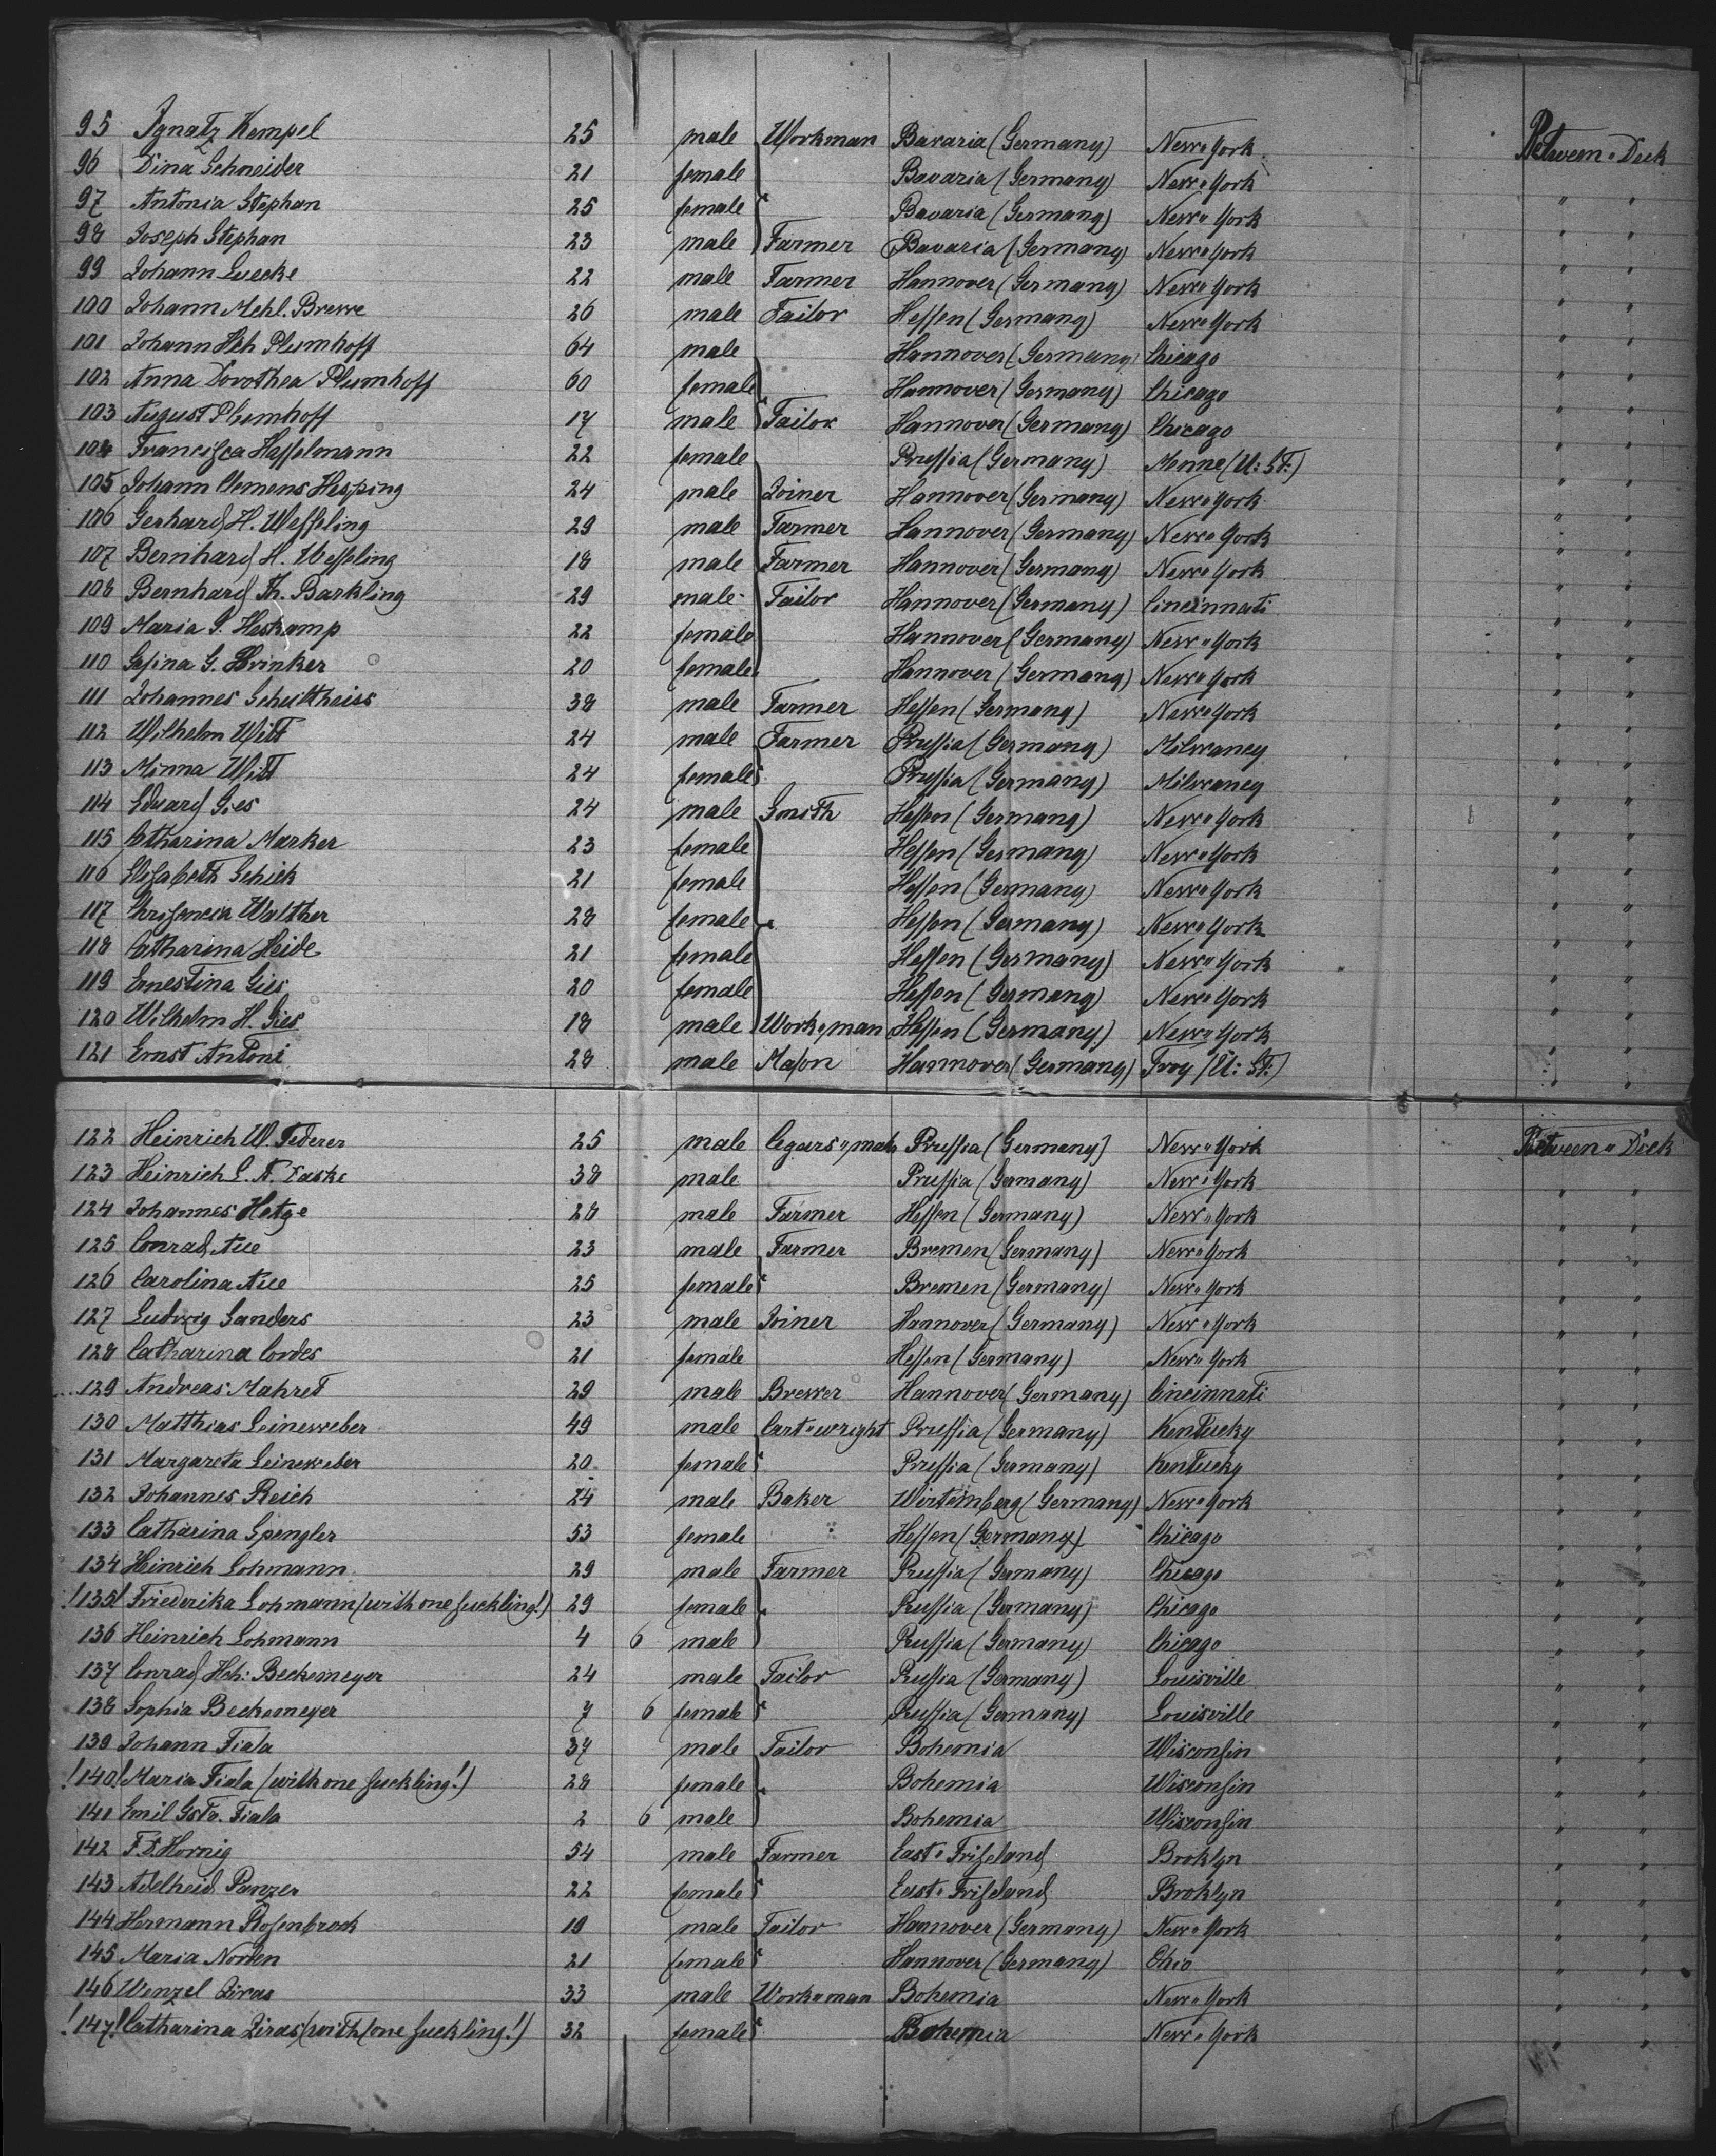 95 Ignatz Kempel 25 male Workman Bavaria (Germany) New-York Between-Deck
96 Dina Schneider 21 female Bavaria (Germany) New-York " "
97 Antonia Stephan 25 female Bavaria (Germany) New-York " "
98 Joseph Stephan 23 male Farmer Bavaria (Germany) New-York " "
99 Johann Luecke 22 male Farmer Hannover (Germany) New-York " "
100 Johann Mehl. Brewe 26 male Tailor Hessen (Germany) New-York " "
101 Johann Hch Plumhoff 64 male Hannover (Germany) Chicago " "
102 Anna Dorothea Plumhoff 60 female Hannover (Germany) Chicago " "
103 August Plumhoff 17 male Tailor Hannover (Germany) Chicago " "
104 Francisca Hasselmann 22 female Prussia (Germany) Monne (U: St:) " "
105 Johann Clemens Hesping 24 male Joiner Hannover (Germany) New-York " "
106 Gerhard H. Wessling 29 male Farmer Hannover (Germany) New-York " "
107 Bernhard H. Wessling 18 male Farmer Hannover (Germany) New-York " "
108 Bernhard Th. Barkling 29 male Tailor Hannover (Germany) Cincinnati " "
109 Maria S. Heskamp 22 female Hannover (Germany) New-York " "
110 Gesina G. Brinker 20 female Hannover (Germany) New-York " "
111 Johannes Schultheiss 38 male Farmer Hessen (Germany) New-York " "
112 Wilhelm Witt 24 male Farmer Prussia (Germany) Milwaney " "
113 Minna Witt 24 female Prussia (Germany) Milwaney " "
114 Eduard Gies 24 male Smith Hessen (Germany) New-York " "
115 Catharina Marker 23 female Hessen (Germany) New-York " "
116 Elisabeth Schick 21 female Hessen (Germany) New-York " "
117 Walther 28 female Hessen (Germany) New-York " "
118 Catharina Heide 21 female Hessen (Germany) New-York " "
119 Ernestina Gies 20 female Hessen (Germany) New-York " "
120 Wilhelm H. Gies 18 male Work-man Hessen (Germany) New-York " "
121 Ernst Antoni 28 male Mason Hannover (Germany) Troy (U: St:) " "
122 Heinrich W. Federer 25 male Cigars-mak Prussia (Germany) New-York Between-Deck
123 Heinrich C. A. Taske 38 male Prussia (Germany) New-York " "
124 Johannes Hetge 28 male Farmer Hessen (Germany) New-York " "
125 Conrad Aue 23 male Farmer Bremen (Germany) New-York " "
126 Carolina Aue 25 female Bremen (Germany) New-York " "
127 Ludwig Sanders 23 male Joiner Hannover (Germany) New-York " "
128 Catharina Cordes 21 female Hessen (Germany) New-York " "
129 Andreas Mahret 29 male Brewer Hannover (Germany) Cincinnati " "
130 Matthias Leineweber 49 male Cart-wright Prussia (Germany) Kentucky " "
131 Margareta Leineweber 20 female Prussia (Germany) Kentucky " "
132 Johannes Reich 24 male Baker Wirtemberg (Germany) New-York " "
133 Catharina Spengler 53 female Hessen (Germany) Chicago " "
134 Heinrich Lohmann 29 male Farmer Prussia (Germany) Chicago " "
!135! Friederika Lohmann (with one suckling!) 29 female Prussia (Germany) Chicago " "
136 Heinrich Lohmann 4 6 male Prussia (Germany) Chicago " "
137 Conrad Hch: Beckemeyer 24 male Tailor Prussia (Germany) Louisville " "
138 Sophia Beckemeyer 7 6 female Prussia (Germany) Louisville " "
139 Johann Fiala 37 male Tailor Bohemia Wisconsin " "
!140! Maria Fiala (with one suckling!) 28 female Bohemia Wisconsin " "
141 Emil Gstv. Fiala 2 6 male Bohemia Wisconsin " "
142 F. D. Hornig 54 male Farmer East-Friseland Broklyn " "
143 Adelheid Panzer 22 female East-Friseland Broklyn " "
144 Hermann Rosenbrock 19 male Tailor Hannover (Germany) New-York " "
145 Maria Norden 21 female Hannover (Germany) Ohio " "
146 Wenzel Ziras 33 male Work-man Bohemia New-York " "
!147! Catharina Ziras (with one suckling!) 32 female Bohemia New-York " "